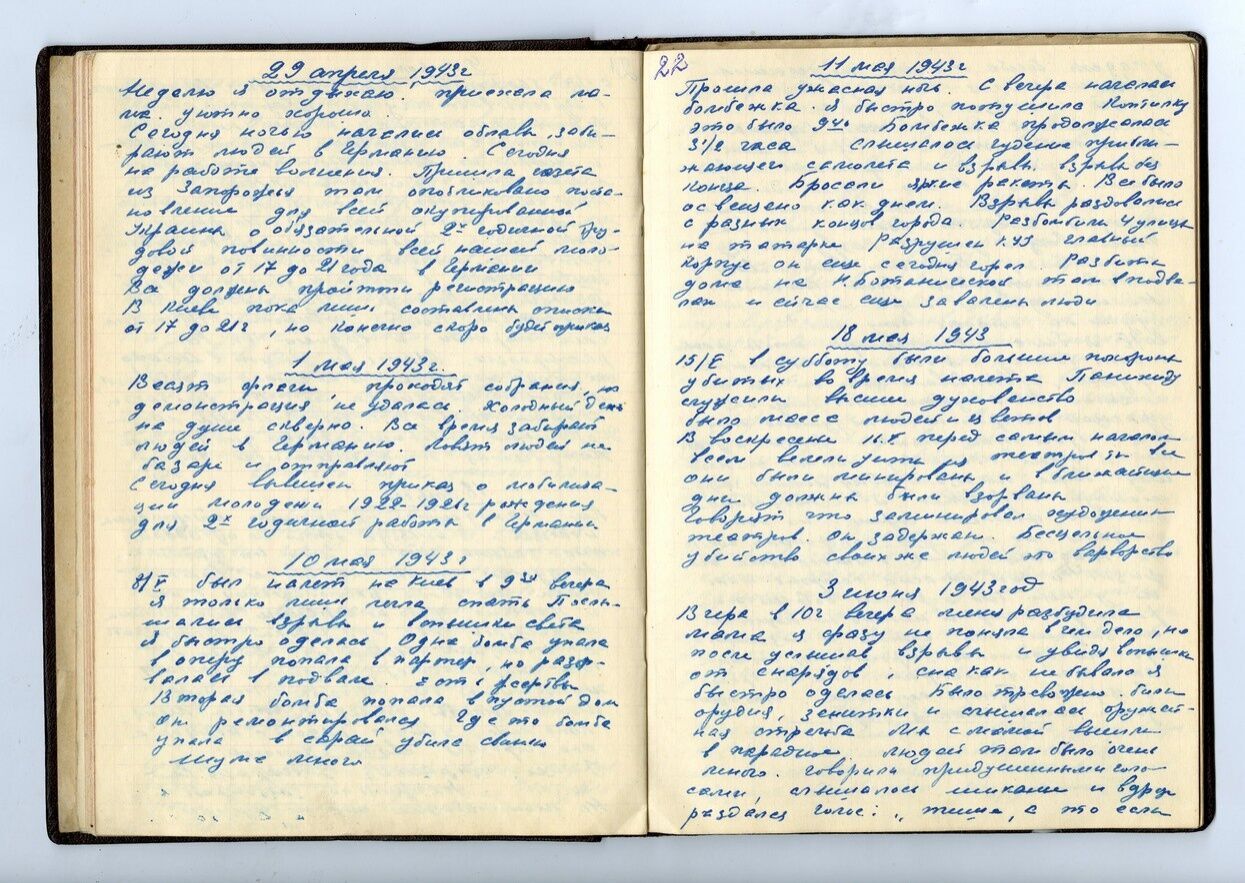 29 апреля 1943г
Неделю я отдыхаю, приехала ма-
ма. уютно хорошо
Сегодня ночью начались облавы, заби-
рают людей в Германию. Сегодня
на работе волнения. Пришла газета
из Запорожья там опубликовано поста-
новление для всей окупированной
Украины о обязательной 2х годичной тру-
довой повинности всей нашей моло-
дежи от 17 до 21 года в Германии
Все должны пройтти регистрацию
В Киеве пока лишь составлены списки
от 17 до 21г, но конечно скоро будет приказ
1 мая 1943г.
Висят флаги проходят собрания, но
демонстрация не удалась. Холодный день
на душе скверно. Все время забирают
людей в Германию. Ловят людей на
базаре и отправляют
Сегодня вывешен приказ о мобилиза-
ции молодежи 1922-192 рождения
для 2х годичной работы в Германии
10 мая 1943г
8/V был налет на Киев в 9 вечера
Я только лиш легла спать Послы-
шались взрывы и вспышки света
Я быстро оделась Одна бомба упала
в оперу попала в партер, но разор-
валась в подвале. Есть жертвы
Вторая бомба попала в пустой дом
он ремонтировался Где то бомба
упала в сарай убила свинью
Шума много
22
11 мая 1943г
Прошла ужасная ночь. С вечера началась
бомбежка. Я быстро потушила Коптилку
это было 9 Бомбежка продолжалась
3 1/2 часа слышалось гудение прибли-
жающегося самолета и взрывы. взрывы без
конца. Бросали яркие ракеты. Все было
освещено как днем. Взрывы раздовались
с разных концов города. Разбомбили 4 улицы
на татарке Разрушен главный
корпус он еще сегодня горел. Разбиты
дома на Н.Ботанической там в подва-
лах и сейчас еще завалены люди
18 мая 1943
15/V в субботу были большие похороны
убитых во время налета Панихиду
служили высшие духовенство
было масса людей и цветов
В воскресение 16.V перед самым началом
всем велели уйти из театров
они были минированы и в ближайшие
дни должны были взорваны
Говорят что заминировал художник
театров. он задержан. Бесцельное
убийство своих же людей это варворство
3 июня 1943 год
Вчера в 10ч вечера меня разбудила
мама я сразу не поняла в чем дело, но
после услышав взрывы и увидя вспышки
от снарядов, сна как не бывало я
быстро оделась Было тревожно. били
орудия, зенитки и слышалась оружей-
ная стрельба Мы с мамой вышли
в парадное людей там было очень
много. говорили придушенными голо-
сами, слышалось шикание и вдруг
раздался голос: „ тише, а то если